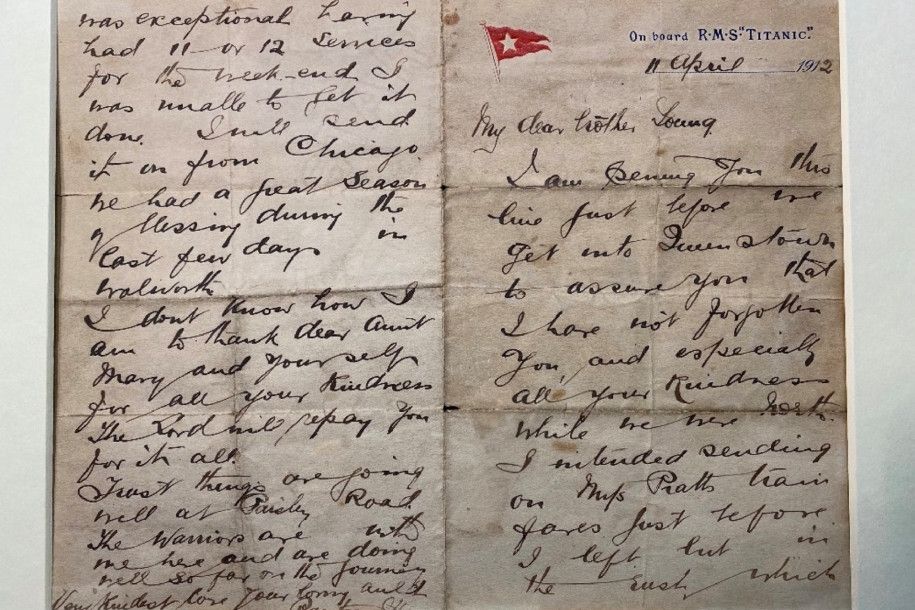 On board R·M·S "TITANIC."
11 April 1912
My dear brother Young
I am penning you this
line just before we
get into Queenstown
to assure you that
I have not forgotten
you, and especially
all your kindness
while we were North.
I intended sending
on Miss Pratts train
fares just before
I left but in
the rush which
was exceptional having
had 11 or 12 services
for the week-end I
was unable to get it
done. I will send
it on from Chicago.
We had a great season
of blessing during the
last few days in
Walworth
I dont know how I
am to thank dear Aunt
Mary and yourself
for all your kindness
The Lord will repay you
for it all.
Trust things are going
well at Paisley Road.
The Warriors are with
me here and are doing
well so far on the journey
Very kindest love your loving auld